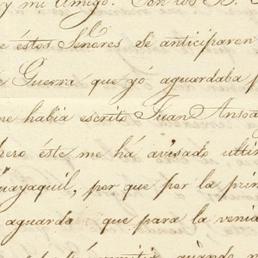 y mi Amigo. Con los
e éstos Señores se anticiparen
e Guerra que yó aguardaba p
me habia escrito Juan Ansoa
pero este me há avisado ultim
uayaquil, por que por la prim
aguarda que para la venia
quando